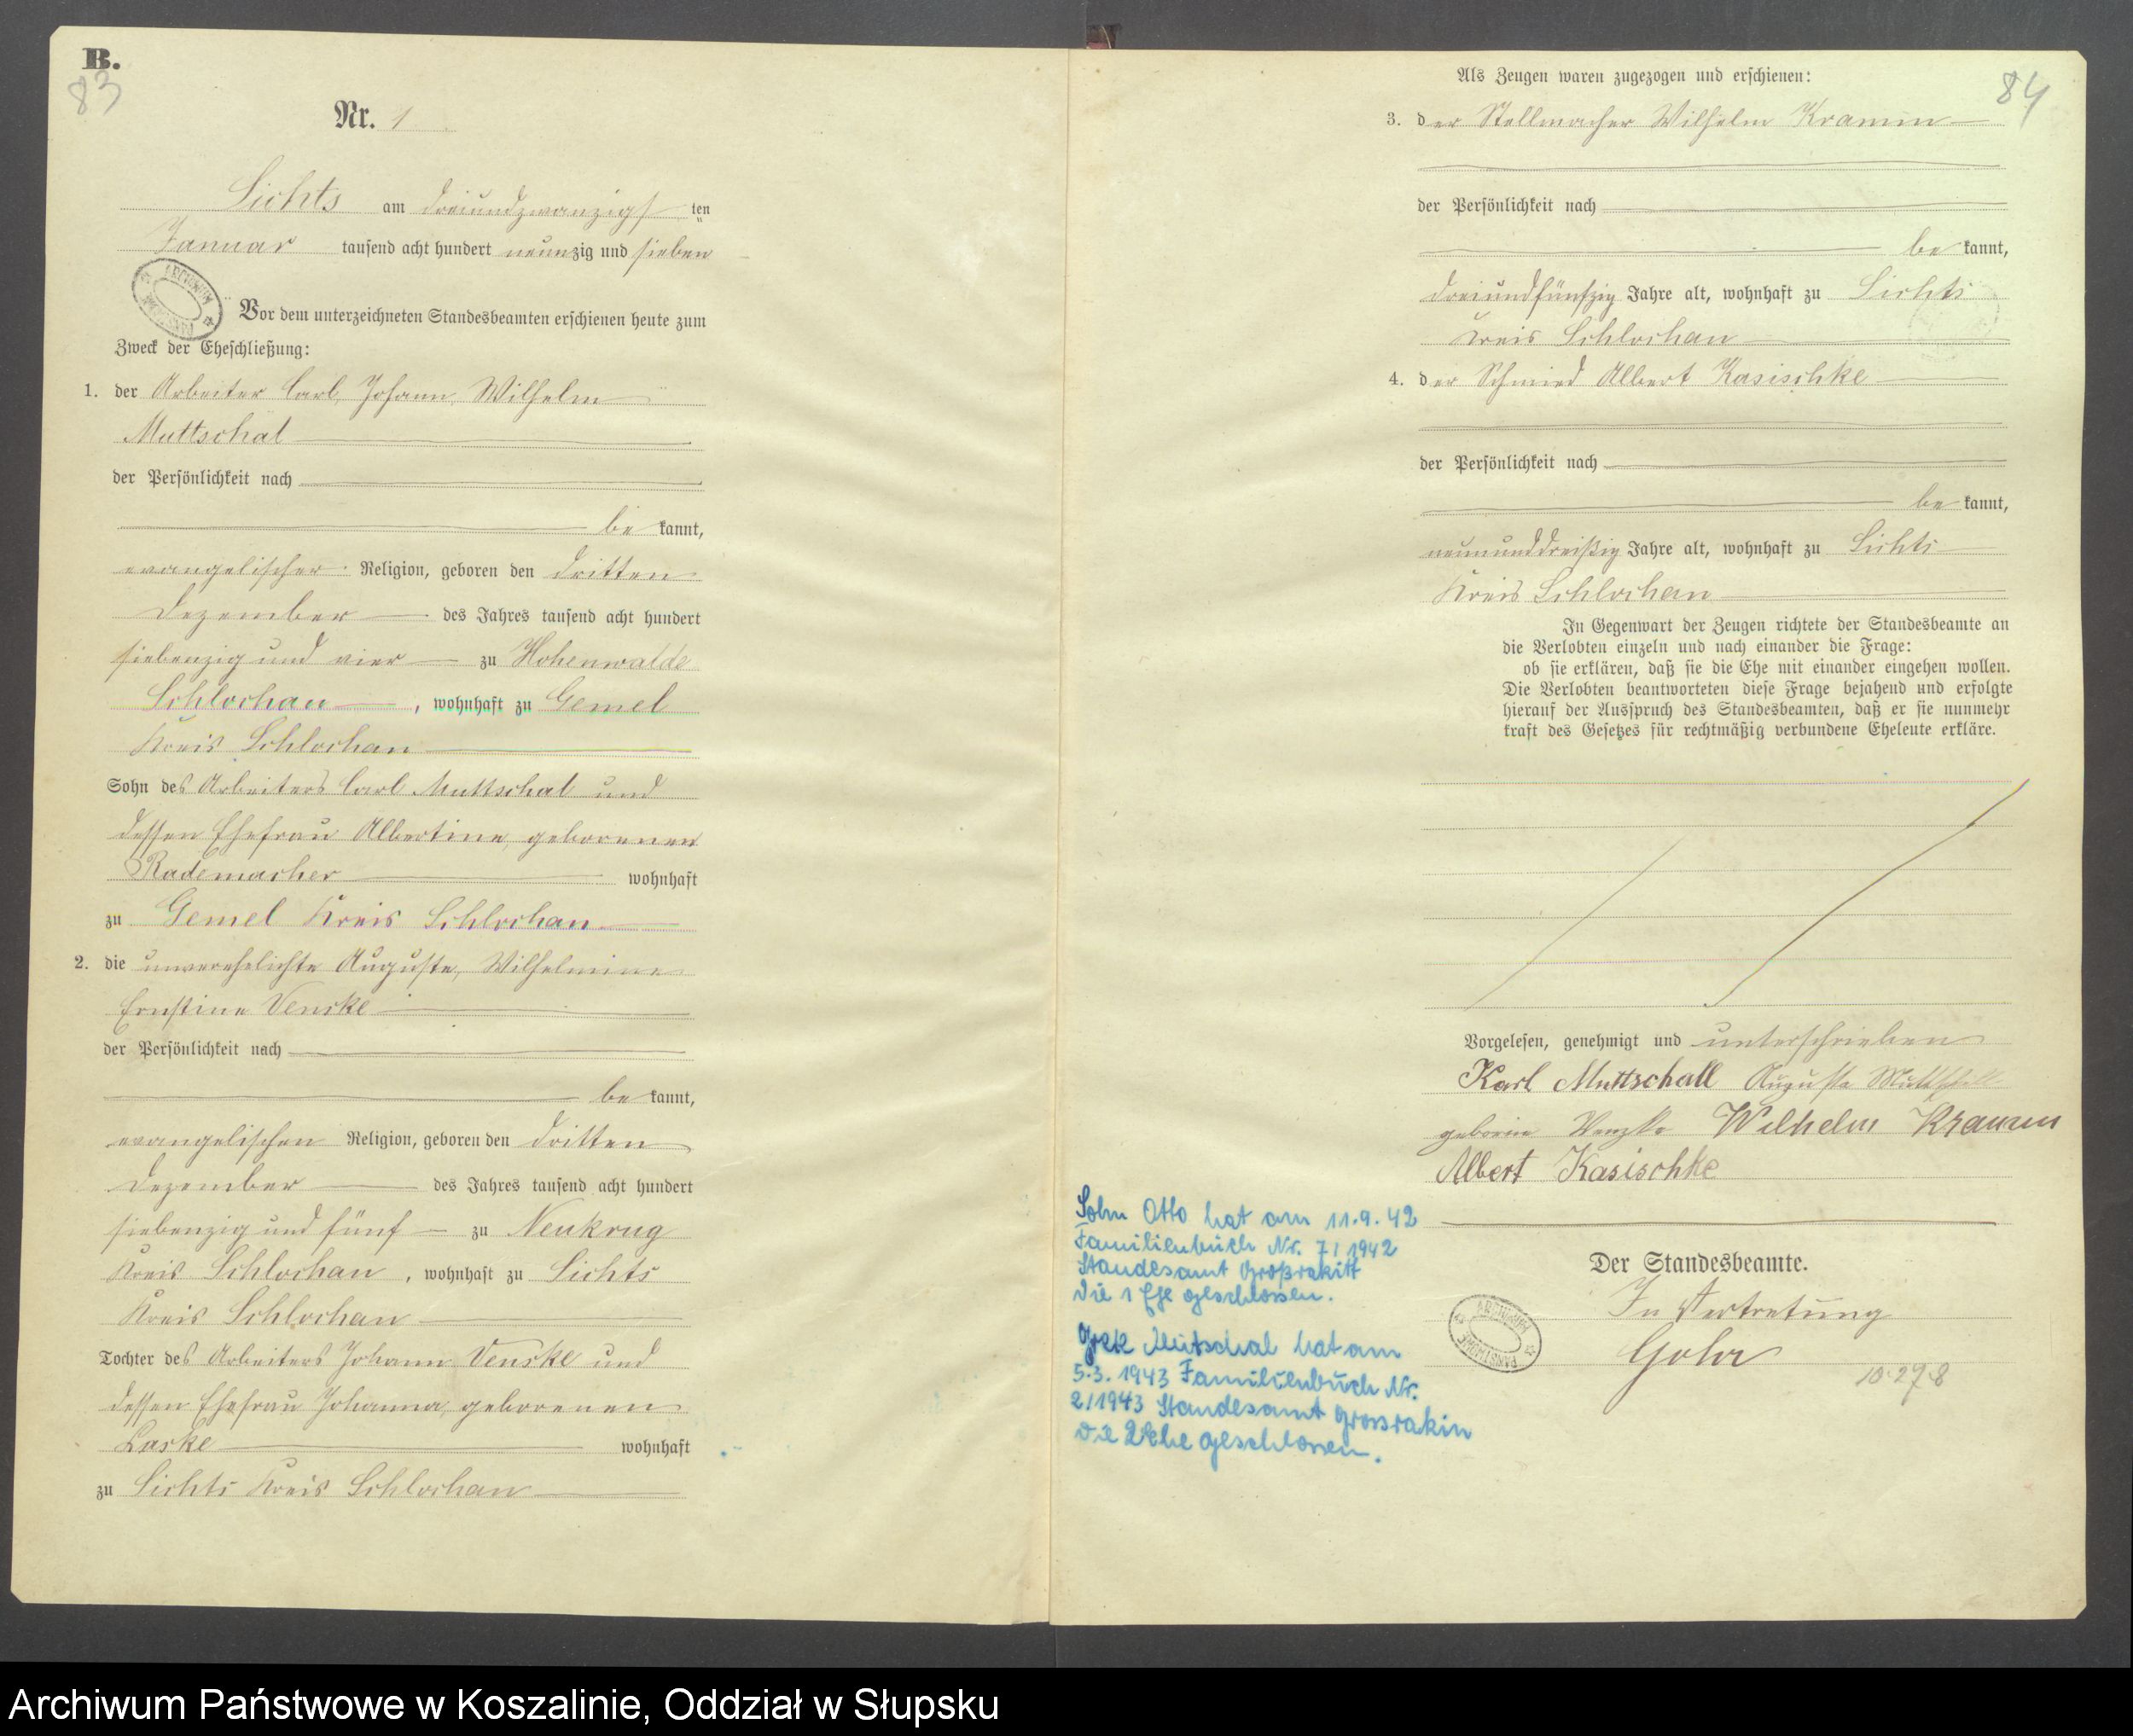 B.
83
Nr. 1
Lichts am dreiundzwanzigsten
Januar tausend acht hundert neunzig und sieben
Vor dem unterzeichneten Standesbeamten erschienen heute zum
Zweck der Eheschließung:
1. der Arbeiter Carl, Johann, Wilhelm
Muttschal
der Persönlichkeit nach
be kannt,
evangelischer Religion, geboren den dritten
Dezember des Jahres tausend acht hundert
siebenzig und vier zu Hohenwalde
Schlochau, wohnhaft zu Gemel
Kreis Schlochau
Sohn des Arbeiters Carl Muttschal und
dessen Ehefrau Albertine, geborenen
Rademacher wohnhaft
zu Gemel Kreis Schlochau
2. die unverehelichte Auguste, Wilhelmine
Ernstine Venske
der Persönlichkeit nach
be kannt,
evangelischen Religion, geboren den dritten
Dezember des Jahres tausend acht hundert
siebenzig und fünf zu Neukrug
Kreis Schlochau, wohnhaft zu Lichts
Kreis Schlochau
Tochter des Arbeiters Johann Venske und
dessen Ehefrau Johanna, geborenen
Laske wohnhaft
zu Lichts Kreis Schlochau
84
Als Zeugen waren zugezogen und erschienen:
3. der Stellmacher Wilhelm Kramin
der Persönlichkeit nach
be kannt,
dreiundfünfzig Jahre alt, wohnhaft zu Lichts
Kreis Schlochau
4. der Schmied Albert Kasischke
der Persönlichkeit nach
be kannt,
neununddreißig Jahre alt, wohnhaft zu Lichts
Kreis Schlochau
In Gegenwart der Zeugen richtete der Standesbeamte an
die Verlobten einzeln und nach einander die Frage:
ob sie erklären, daß sie die Ehe mit einander eingehen wollen.
Die Verlobten beantworteten diese Frage bejahend und erfolgte
hierauf der Ausspruch des Standesbeamten, daß er sie nunmehr
kraft des Gesetzes für rechtmäßig verbundene Eheleute erkläre.
Vorgelesen, genehmigt und unterschrieben
Karl Muttschall Auguste Muttschall
geborne Wenzke Wilhelm Kramin
Albert Kasischke
Sohn Otto hat am 11.9.42
Familienbuch Nr. 7/1942
Standesamt Großrakitt
die 1 Ehe geschlossen.
Mutschal hat am
5.3.1943 Familienbuch Nr.
2/1943 Standesamt Grossrakin
die 2 Ehe geschlossen.
Der Standesbeamte.
In Vertretung
Gohr
10.278
Archiwum Państwowe w Koszalinie, Oddział w Słupsku